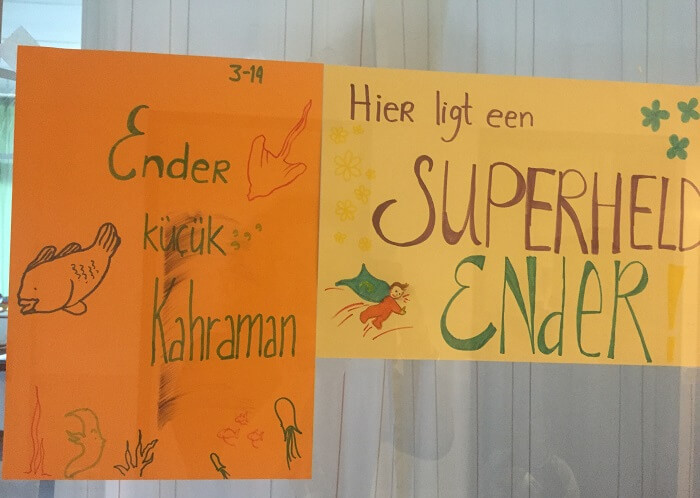 3-14
Ender
küçük
Kahraman
Hier ligt een
SUPERHELD
ENdeR!